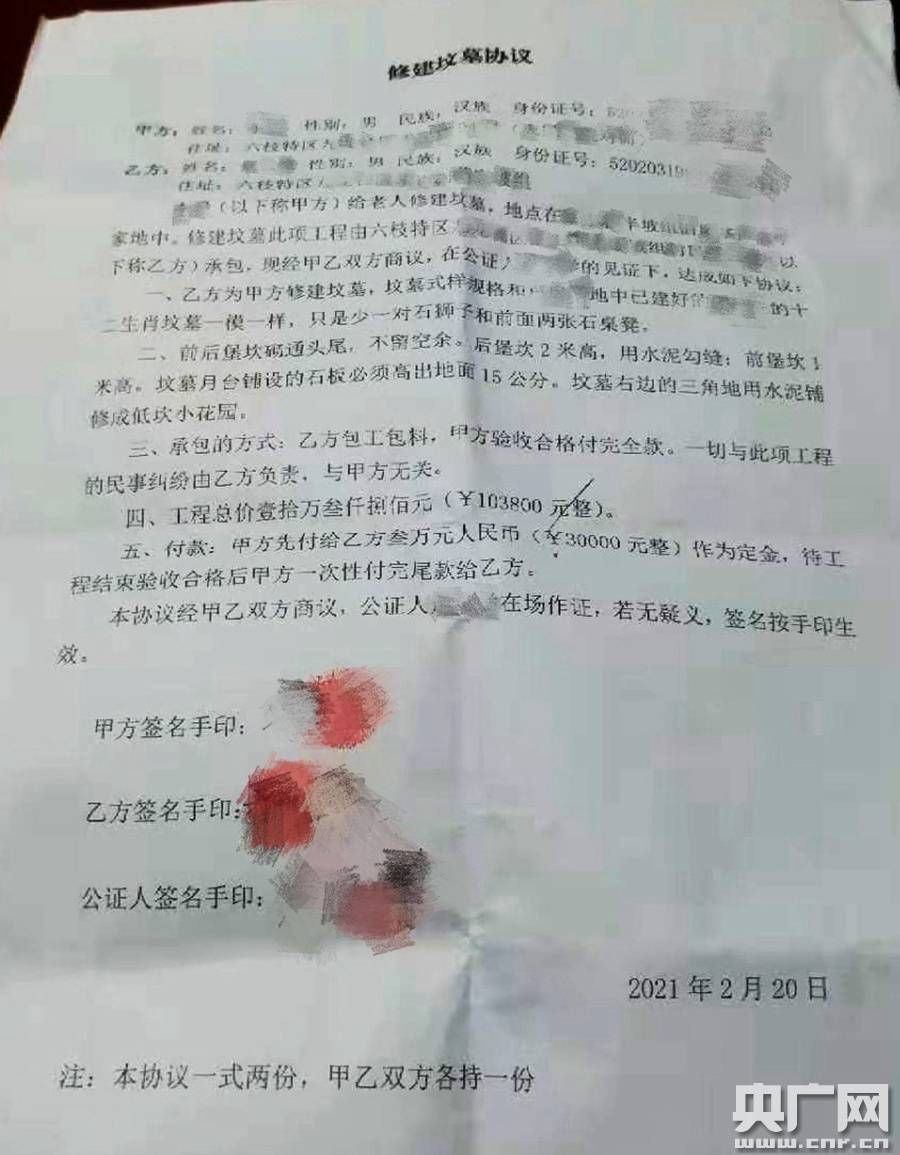 修建坟墓协议
甲方：姓名： 性别：男 民族：汉族 身份证号：520
住址：六枝特区
乙方：姓名： 性别：男 民族：汉族 身份证号：52020319
住址：六枝特区 组
（以下称甲方）给老人修建坟墓，地点在 半坡组
家地中。修建坟墓此项工程由六枝特区 以
下称乙方）承包，现经甲乙双方商议，在公证人 的见证下，达成如下协议：
一、乙方为甲方修建坟墓，坟墓式样规格和 地中已建好的 的十
二生肖坟墓一模一样，只是少一对石狮子和前面两张石桌凳。
二、前后堡坎砌通头尾，不留空余。后堡坎2米高，用水泥勾缝；前堡坎1
米高。坟墓月台铺设的石板必须高出地面15公分。坟墓右边的三角地用水泥铺
修成低坎小花园。
三、承包的方式：乙方包工包料，甲方验收合格付完全款。一切与此项工程
的民事纠纷由乙方负责，与甲方无关。
四、工程总价壹拾万叁仟捌佰元（￥103800元整）。
五、付款：甲方先付给乙方叁万元人民币（￥30000元整）作为定金，待工
程结束验收合格后甲方一次性付完尾款给乙方。
本协议经甲乙双方商议，公证人 在场作证，若无疑义，签名按手印生
效。
甲方签名手印：
乙方签名手印：
公证人签名手印：
2021年2月20日
注：本协议一式两份，甲乙双方各持一份
央广网
www.cnr.cn